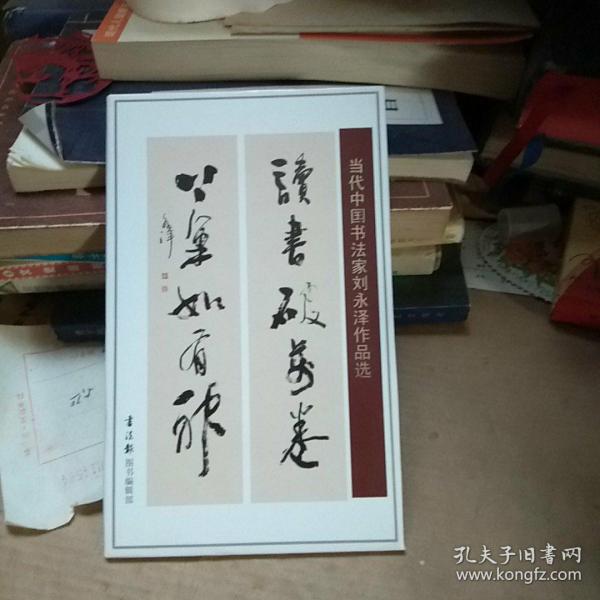 当代中国书法家刘永泽作品选
讀書破萬卷
下筆如有神
永泽
书法报 图书编辑部
孔夫子旧书网
www.kongfz.com